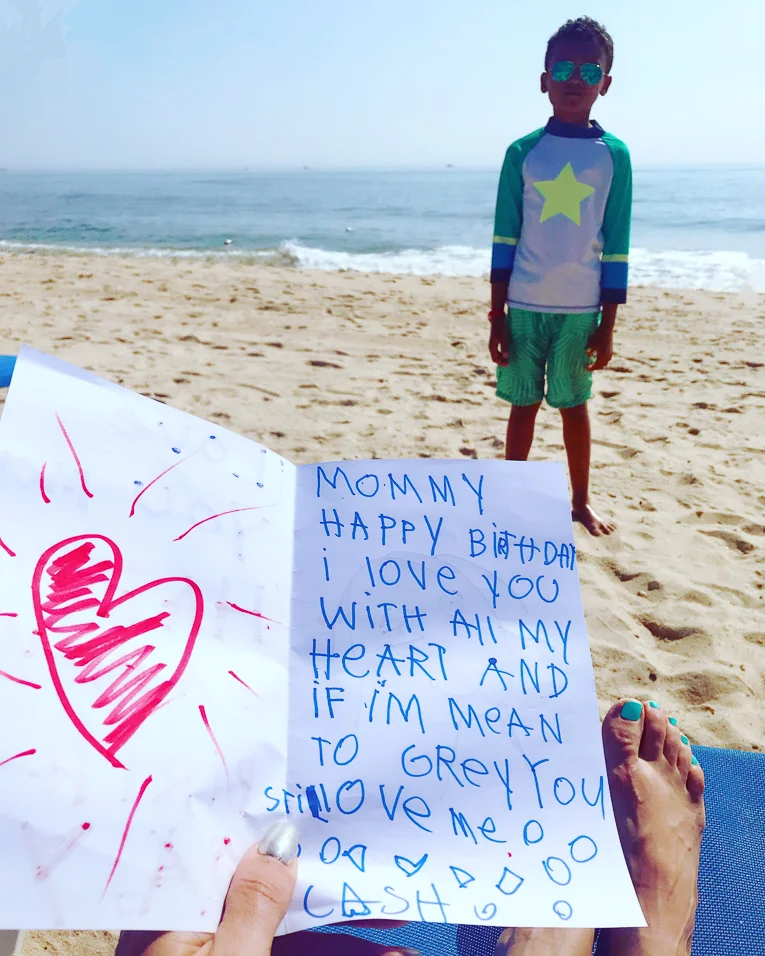 MOMMY
HAPPY BiRTHDAY
i love you
WiTH All MY
HeART AND
iF i'M MeAN
TO GReY You
still lOVe Me
CASH